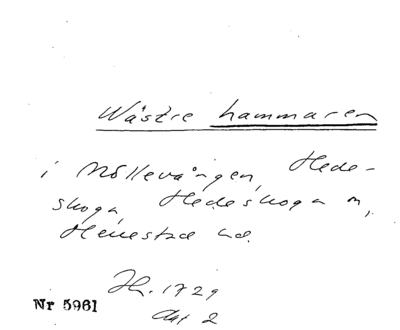 Wästre hammaren
i Möllevången, Hede-
skoga, Hedeskoga sn,
Herrestad hd.
Jb. 1729
akt 2
Nr 5961